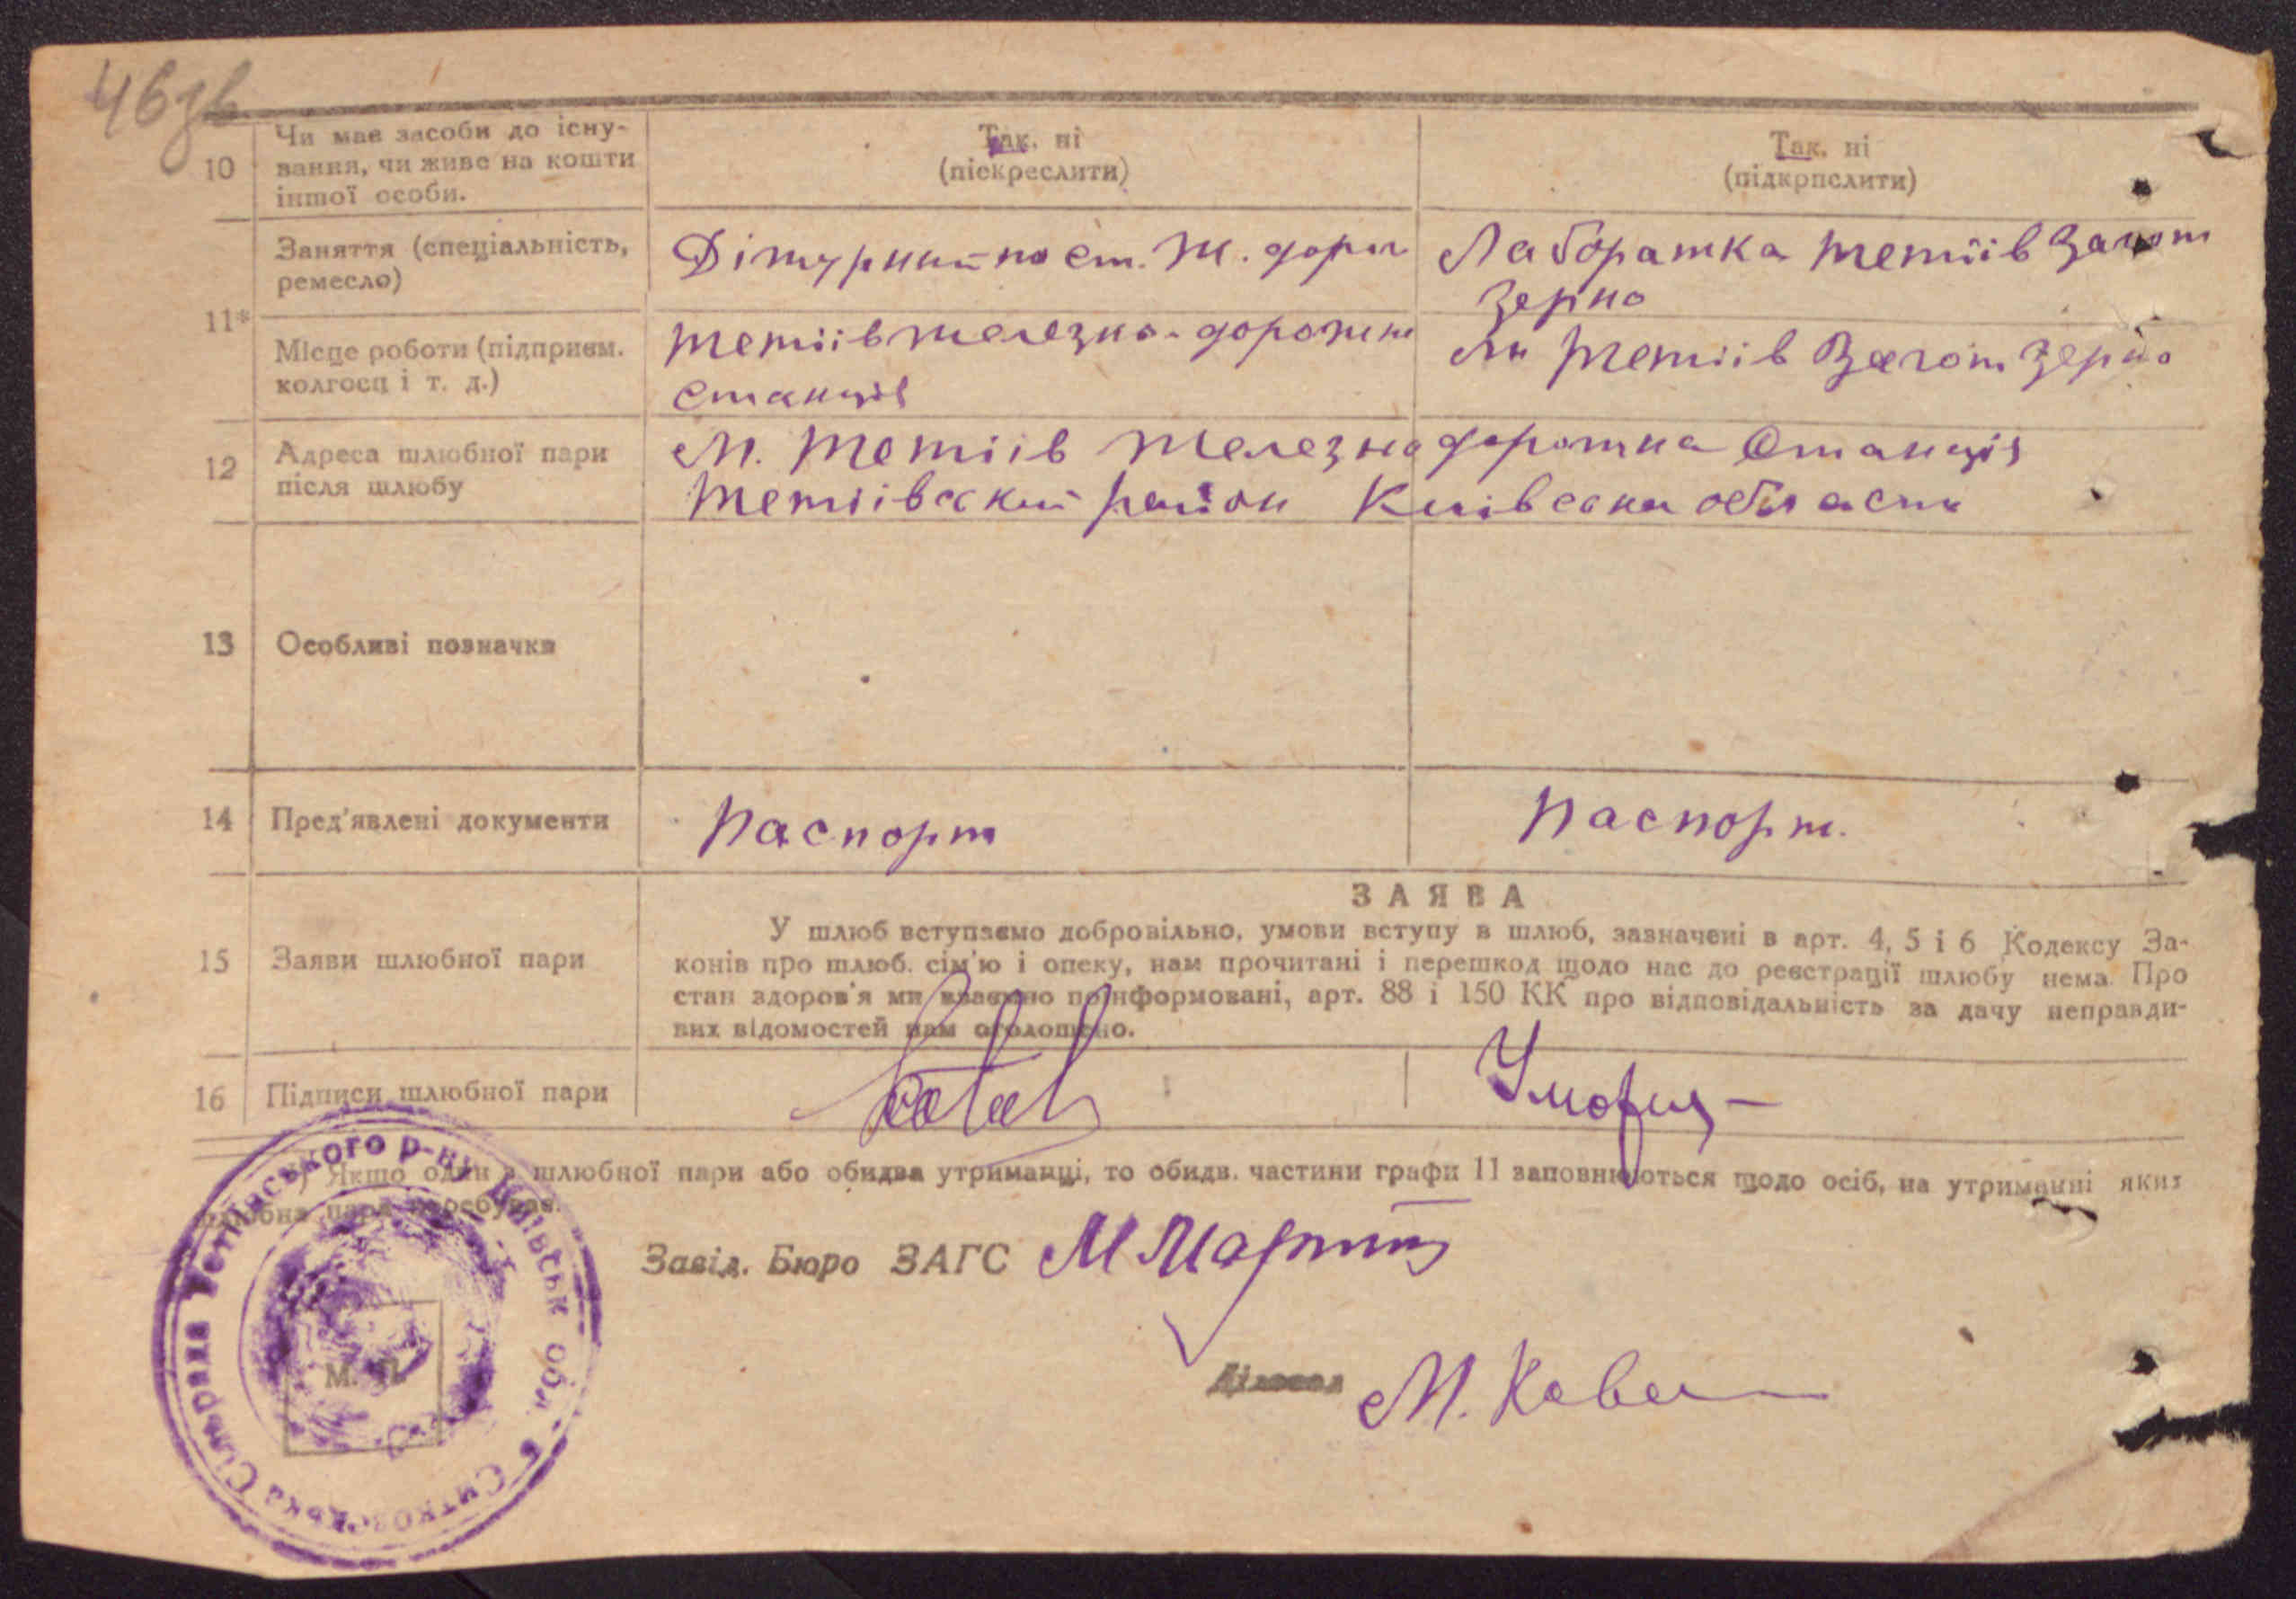 46зв
10
Чи має засоби до існу-
вання, чи живе на кошти
іншої особи.
Так, ні
(піскреслити)
Так, ні
(підкрпслити)
11*
Заняття (спеціальність,
ремесло)
Діжурний по ст. Ж. дороги
Лаборатка Тетіів Загот
Зерно
Місце роботи (підприєм.
колгосп і т. д.)
Тетіів железно-дорожна
станція
м Тетіів Загот Зерно
12
Адреса шлюбної пари
після шлюбу
М. Тетіів Железнодорожна Станція
Тетіівский район Киівська область
13
Особливі позначки
14
Пред'явлені документи
Паспорт
Паспорт.
15
Заяви шлюбної пари
ЗАЯВА
У шлюб вступаємо добровільно, умови вступу в шлюб, зазначені в арт. 4, 5 і 6 Кодексу За-
конів про шлюб. сім'ю і опеку, нам прочитані і перешкод щодо нас до реєстрації шлюбу нема. Про
стан здоров'я ми взаємно поінформовані, арт. 88 і 150 КК про відповідальність за дачу неправди-
вих відомостей нам оголошено.
16
Підписи шлюбної пари
*) Якщо один з шлюбної пари або обидва утриманці, то обидв. частини графи 11 заповнюються щодо осіб, на утриманні яких
шлюбна пара перебуває.
Завід. Бюро ЗАГС
Діловод М. Кова
М. П.
Сільрада Тетіївського р-ну Київськ обл.